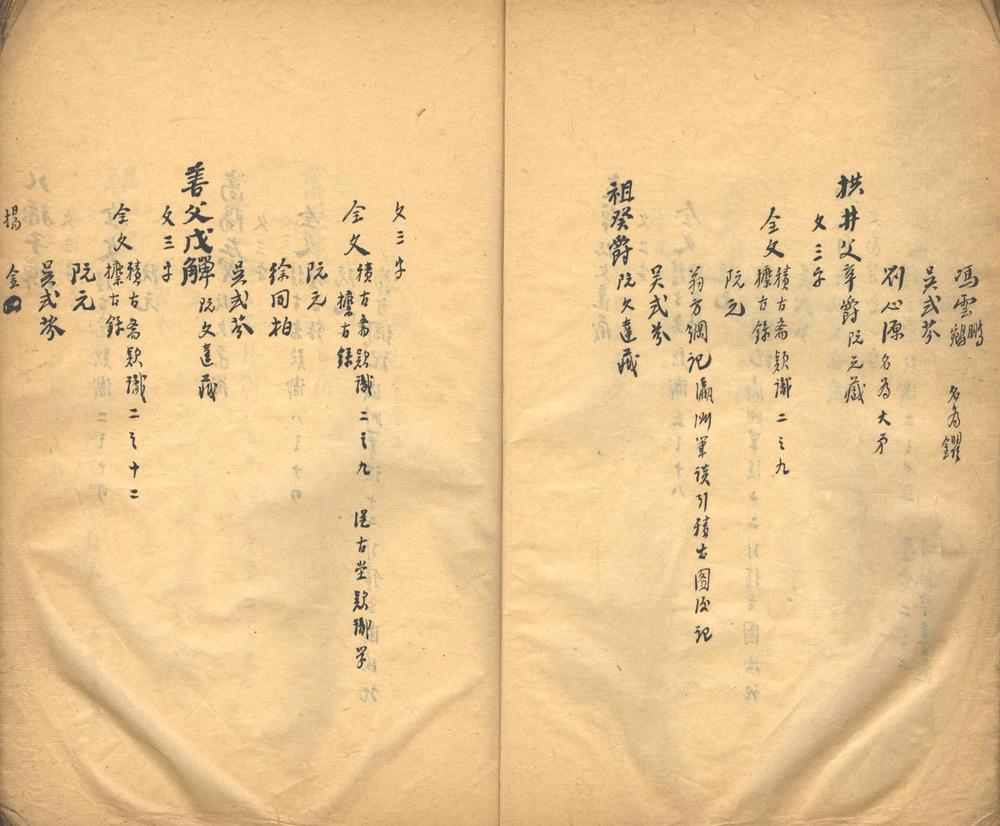 馮雲鵬 鵷 名為鑼
吳式芬
劉心源 名為大矛
拱井父辛爵 阮元藏
文三字
金文 積古齋款識二之九
攈古錄
阮元
翁方綱記 瀛洲筆談引積古圖後記
吳式芬
祖癸爵 阮文達藏
文三字
金文 積古齋款識二之九 從古堂款識學
攈古錄
阮元
徐同柏
吳式芬
善父戊觶 阮文達藏
文三字
金文 積古齋款識二之十二
攈古錄
阮元
吳式芬
楊
金